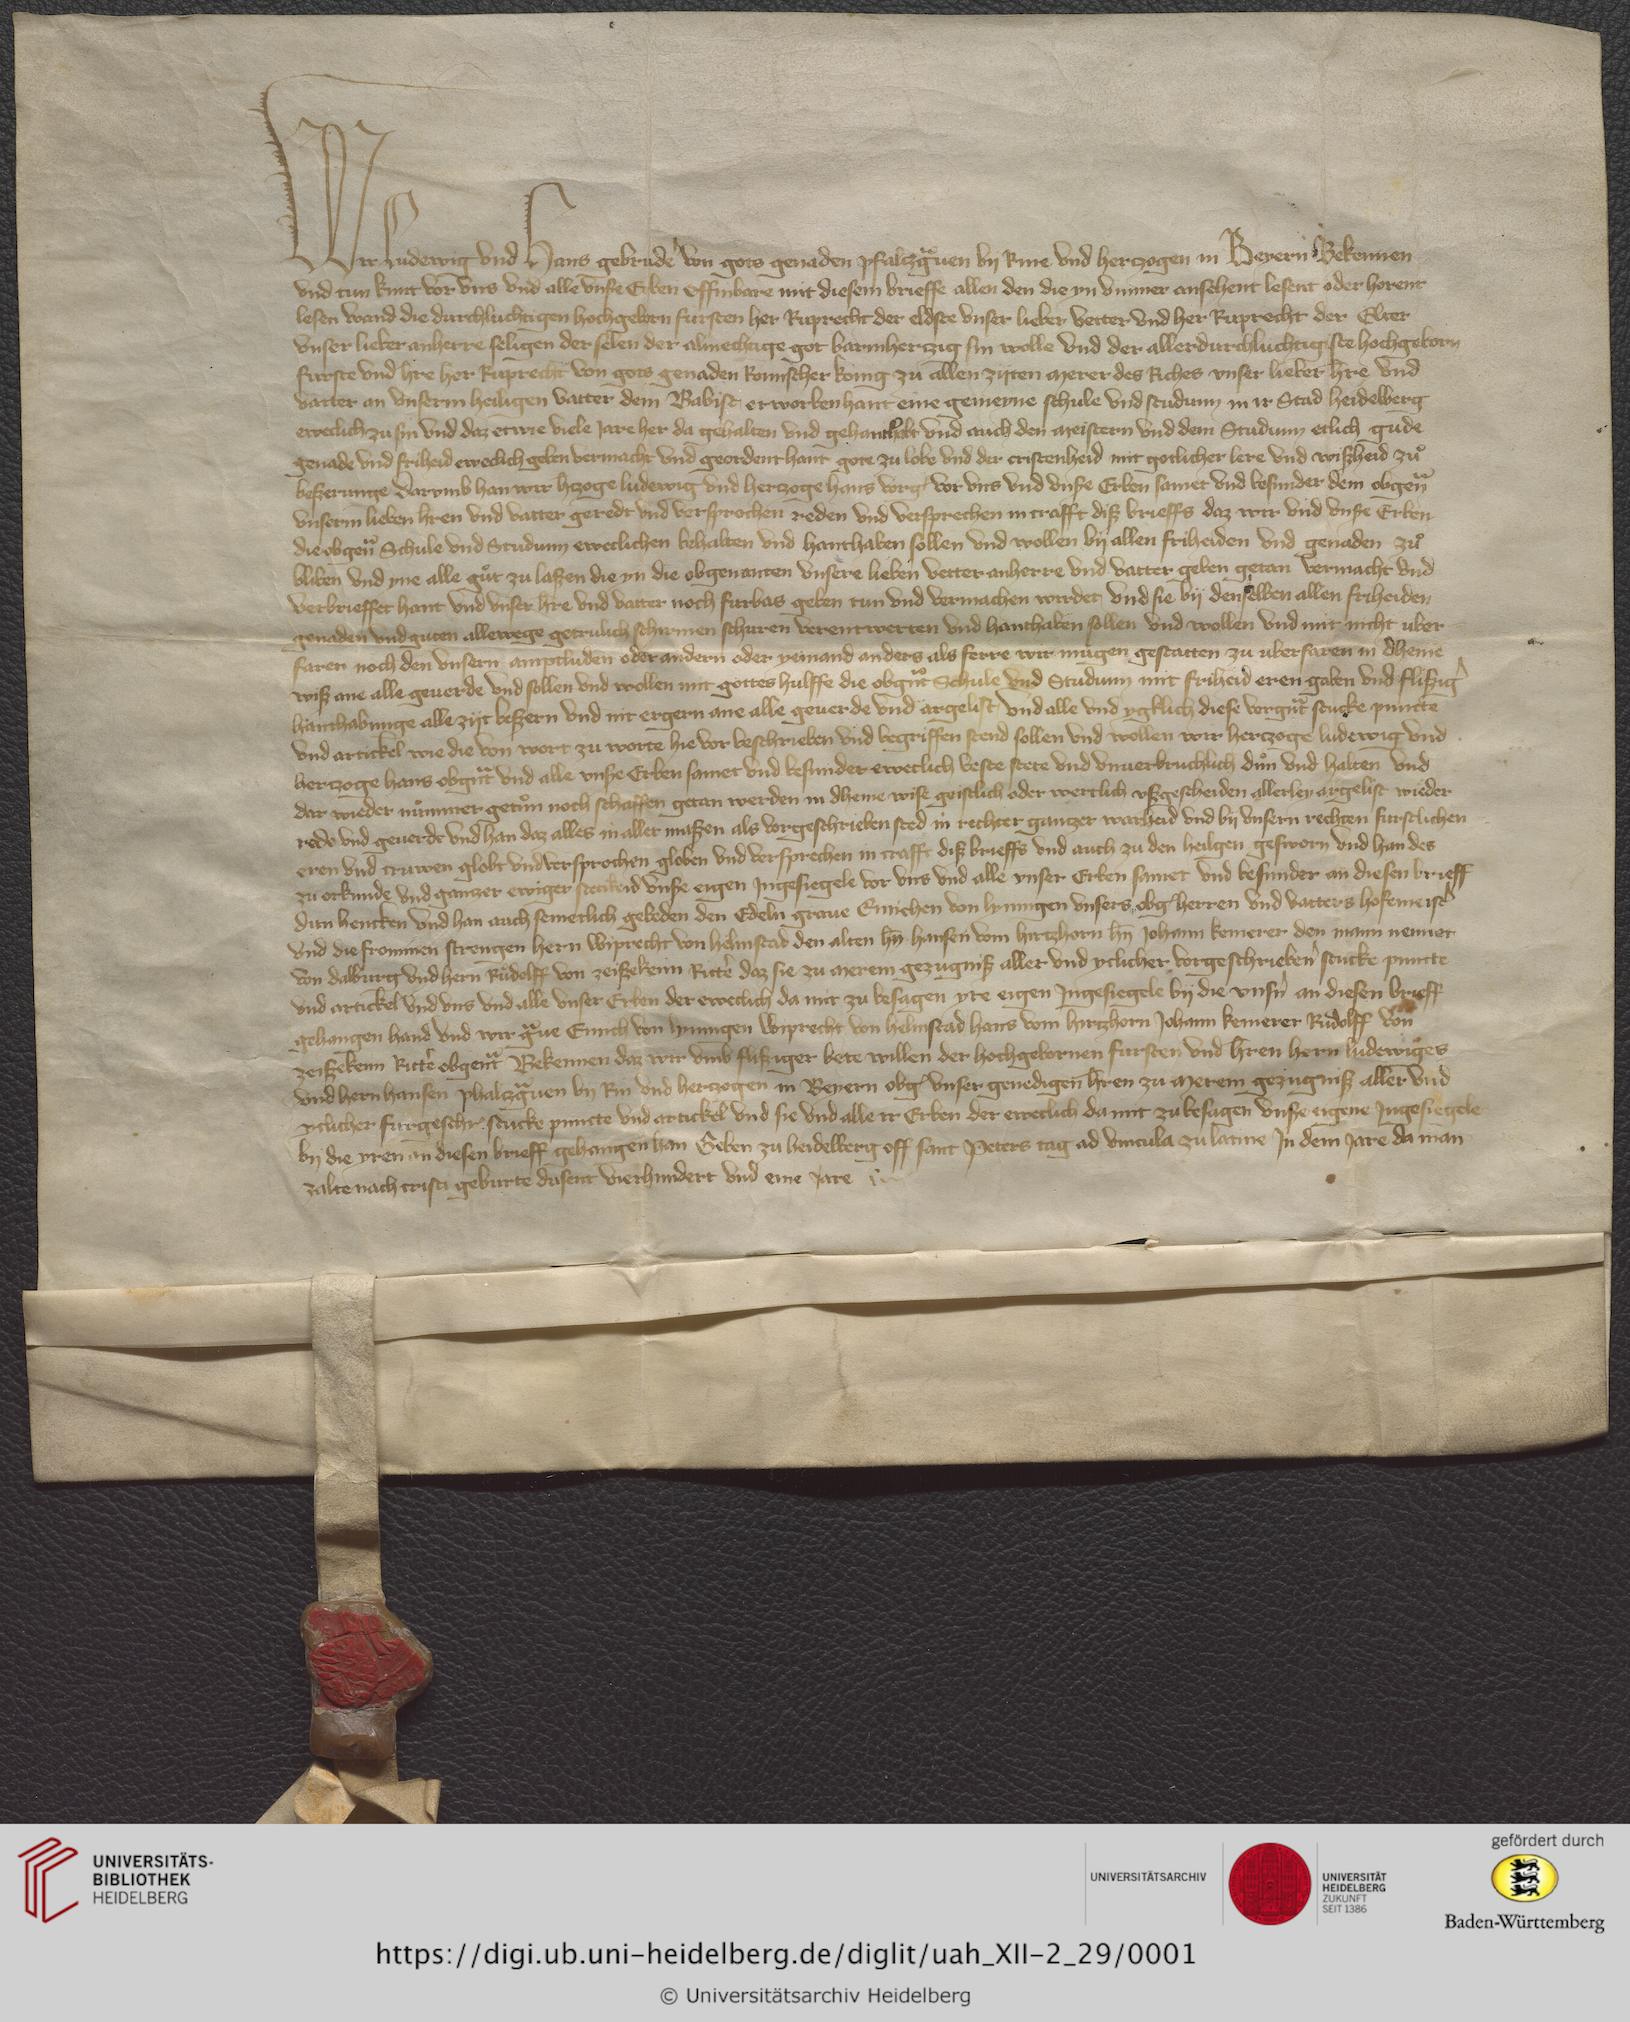 Wir Ludewig vnd Hans gebrude' von gots genaden pfaltzguen by Rine vnd hertzogen in Beyern Bekennen
vnd tun kunt vor vns vnd alle vnße Erben offinbare mit diesem brieffe allen den die yn vmmer ansehent lesent oder horent
lesen wand die durchluchtigen hochgeborn fursten her Ruprecht der eldste vnser lieber vetter vnd her Ruprecht der Elter
vnser lieber anherre seligen der selen der almechtige got barmhertzig sin wolle vnd der allerdurchluchtigiste hochgeborn
furste vnd hre her Ruprecht von gots genaden Romischer konig zu allen zijten merer des Riches vnser lieber hre vnd
vatter an vnserm heiligen vatter dem Babist erworben hant eine gemeyne schule vnd studium in ir Stad heidelberg
eweclich zu sin vnd daz etwie viele Jare her da gehalten vnd gehanthabt vnd auch den meistern vnd dem Studium etlich gude
genade vnd friheid eweclich geben vermacht vnd geordent hant gote zu lobe vnd der cristenheid mit gotlicher lere vnd wißheid zu
beßerunge Darvmb han wir hzoge ludewig vnd hertzoge hans vorg' vor vns vnd vnße Erben samet vnd besunder dem obgen
vnserm lieben hren vnd vatter geredt vnd versprochen reden vnd versprechen in crafft diß brieffs daz wir vnd vnße Erben
die obgen Schule vnd Studium eweclichen behalten vnd hanthaben sollen vnd wollen by allen friheiden vnd genaden zu
bliben vnd yne alle gut zu laßen die yn die obgenanten vnsere lieben vetter anherre vnd vatter geben getan vermacht vnd
verbrieffet hant vnd vnser hre vnd vatter noch furbas geben tun vnd vermachen wirdet vnd sie by denselben allen friheiden
genaden vnd guten allewege getrulich schirmen schuren verentwerten vnd hanthaben sollen vnd wollen vnd mit nicht uber
faren noch den vnsern amptluden oder andern oder yemand anders als ferre wir mugen gestatten zu uberfaren in dheine
wiß ane alle geuerde vnd sollen vnd wollen mit gottes hulffe die obgnt Schule vnd Studium mit friheid eren gaben vnd flißig'
hanthabunge alle zijt beßern vnd nit ergern ane alle geuerde vnd argelist vnd alle vnd ygklich diese vorgnt stucke puncte
vnd artickel wie die von wort zu worte hie vor beschrieben vnd begriffen stend sollen vnd wollen wir hertzoge ludewig vnd
hertzoge hans obgnt vnd alle vnße Erben samet vnd besunder eweclich veste stete vnd vnuerbruchlich dun vnd halten vnd
dar wieder nummer getun noch schaffen getan werden in dheine wise geistlich oder werltlich vßgescheiden allerley argelist wieder
rede vnd geuerde vnd han daz alles in aller maßen als vorgeschrieben sted in rechter gantzer warheid vnd by vnsern rechten furstlichen
eren vnd truwen globt vnd versprochen globen vnd versprechen in crafft diß brieffs vnd auch zu den heilgen gesworn vnd han des
zu orkunde vnd gantzer ewiger stetikeid vnße eigen Ingesiegele vor vns vnd alle vnser Erben samet vnd besunder an diesen brieff
dun hencken vnd han auch semetlich gebeden den Edeln graue Emichen von lyningen vnsers obg' herren vnd vatters hofemeist'
vnd die frommen strengen hern Wiprecht von helmstad den alten hn hansen vom hirtzhorn hn Johann kemerer den mann nennet
von dalburg vnd hern Rudolff von zeißekeim Ritte' daz sie zu merem gezugniß aller vnd yclicher vorgeschrieben stucke puncte
vnd artickel vnd vns vnd alle vnser Erben der eweclich da mit zu besagen yre eigen Ingesiegele by die vnsn an diesen brieff
gehangen hand vnd wir gue Emich von lyningen Wiprecht von helmstad hans vom hirtzhorn Johann kemerer Rudolff von
zeißekeim Ritte' obgent Bekennen daz wir vmb flißiger bete willen der hochgebornen fursten vnd hren hern ludewiges
vnd hern hansen phaltzguen by Rin vnd hertzogen in Beyern obg' vnser genedigen hren zu merem gezugniß aller vnd
yclicher furgeschr' stucke puncte vnd artickel vnd sie vnd alle ir Erben der eweclich da mit zu besagen vnße eigene Ingesiegele
by die yren an diesen brieff gehangen han Geben zu heidelberg off sant Peters tag ad vincula zu latine In dem Jare da man
zalte nach cristi geburte dusent vierhundert vnd eine Jare
UNIVERSITÄTS-
BIBLIOTHEK
HEIDELBERG
UNIVERSITÄTSARCHIV
UNIVERSITÄT
HEIDELBERG
ZUKUNFT
SEIT 1386
gefördert durch
Baden-Württemberg
https://digi.ub.uni-heidelberg.de/diglit/uah_XII-2_29/0001
© Universitätsarchiv Heidelberg